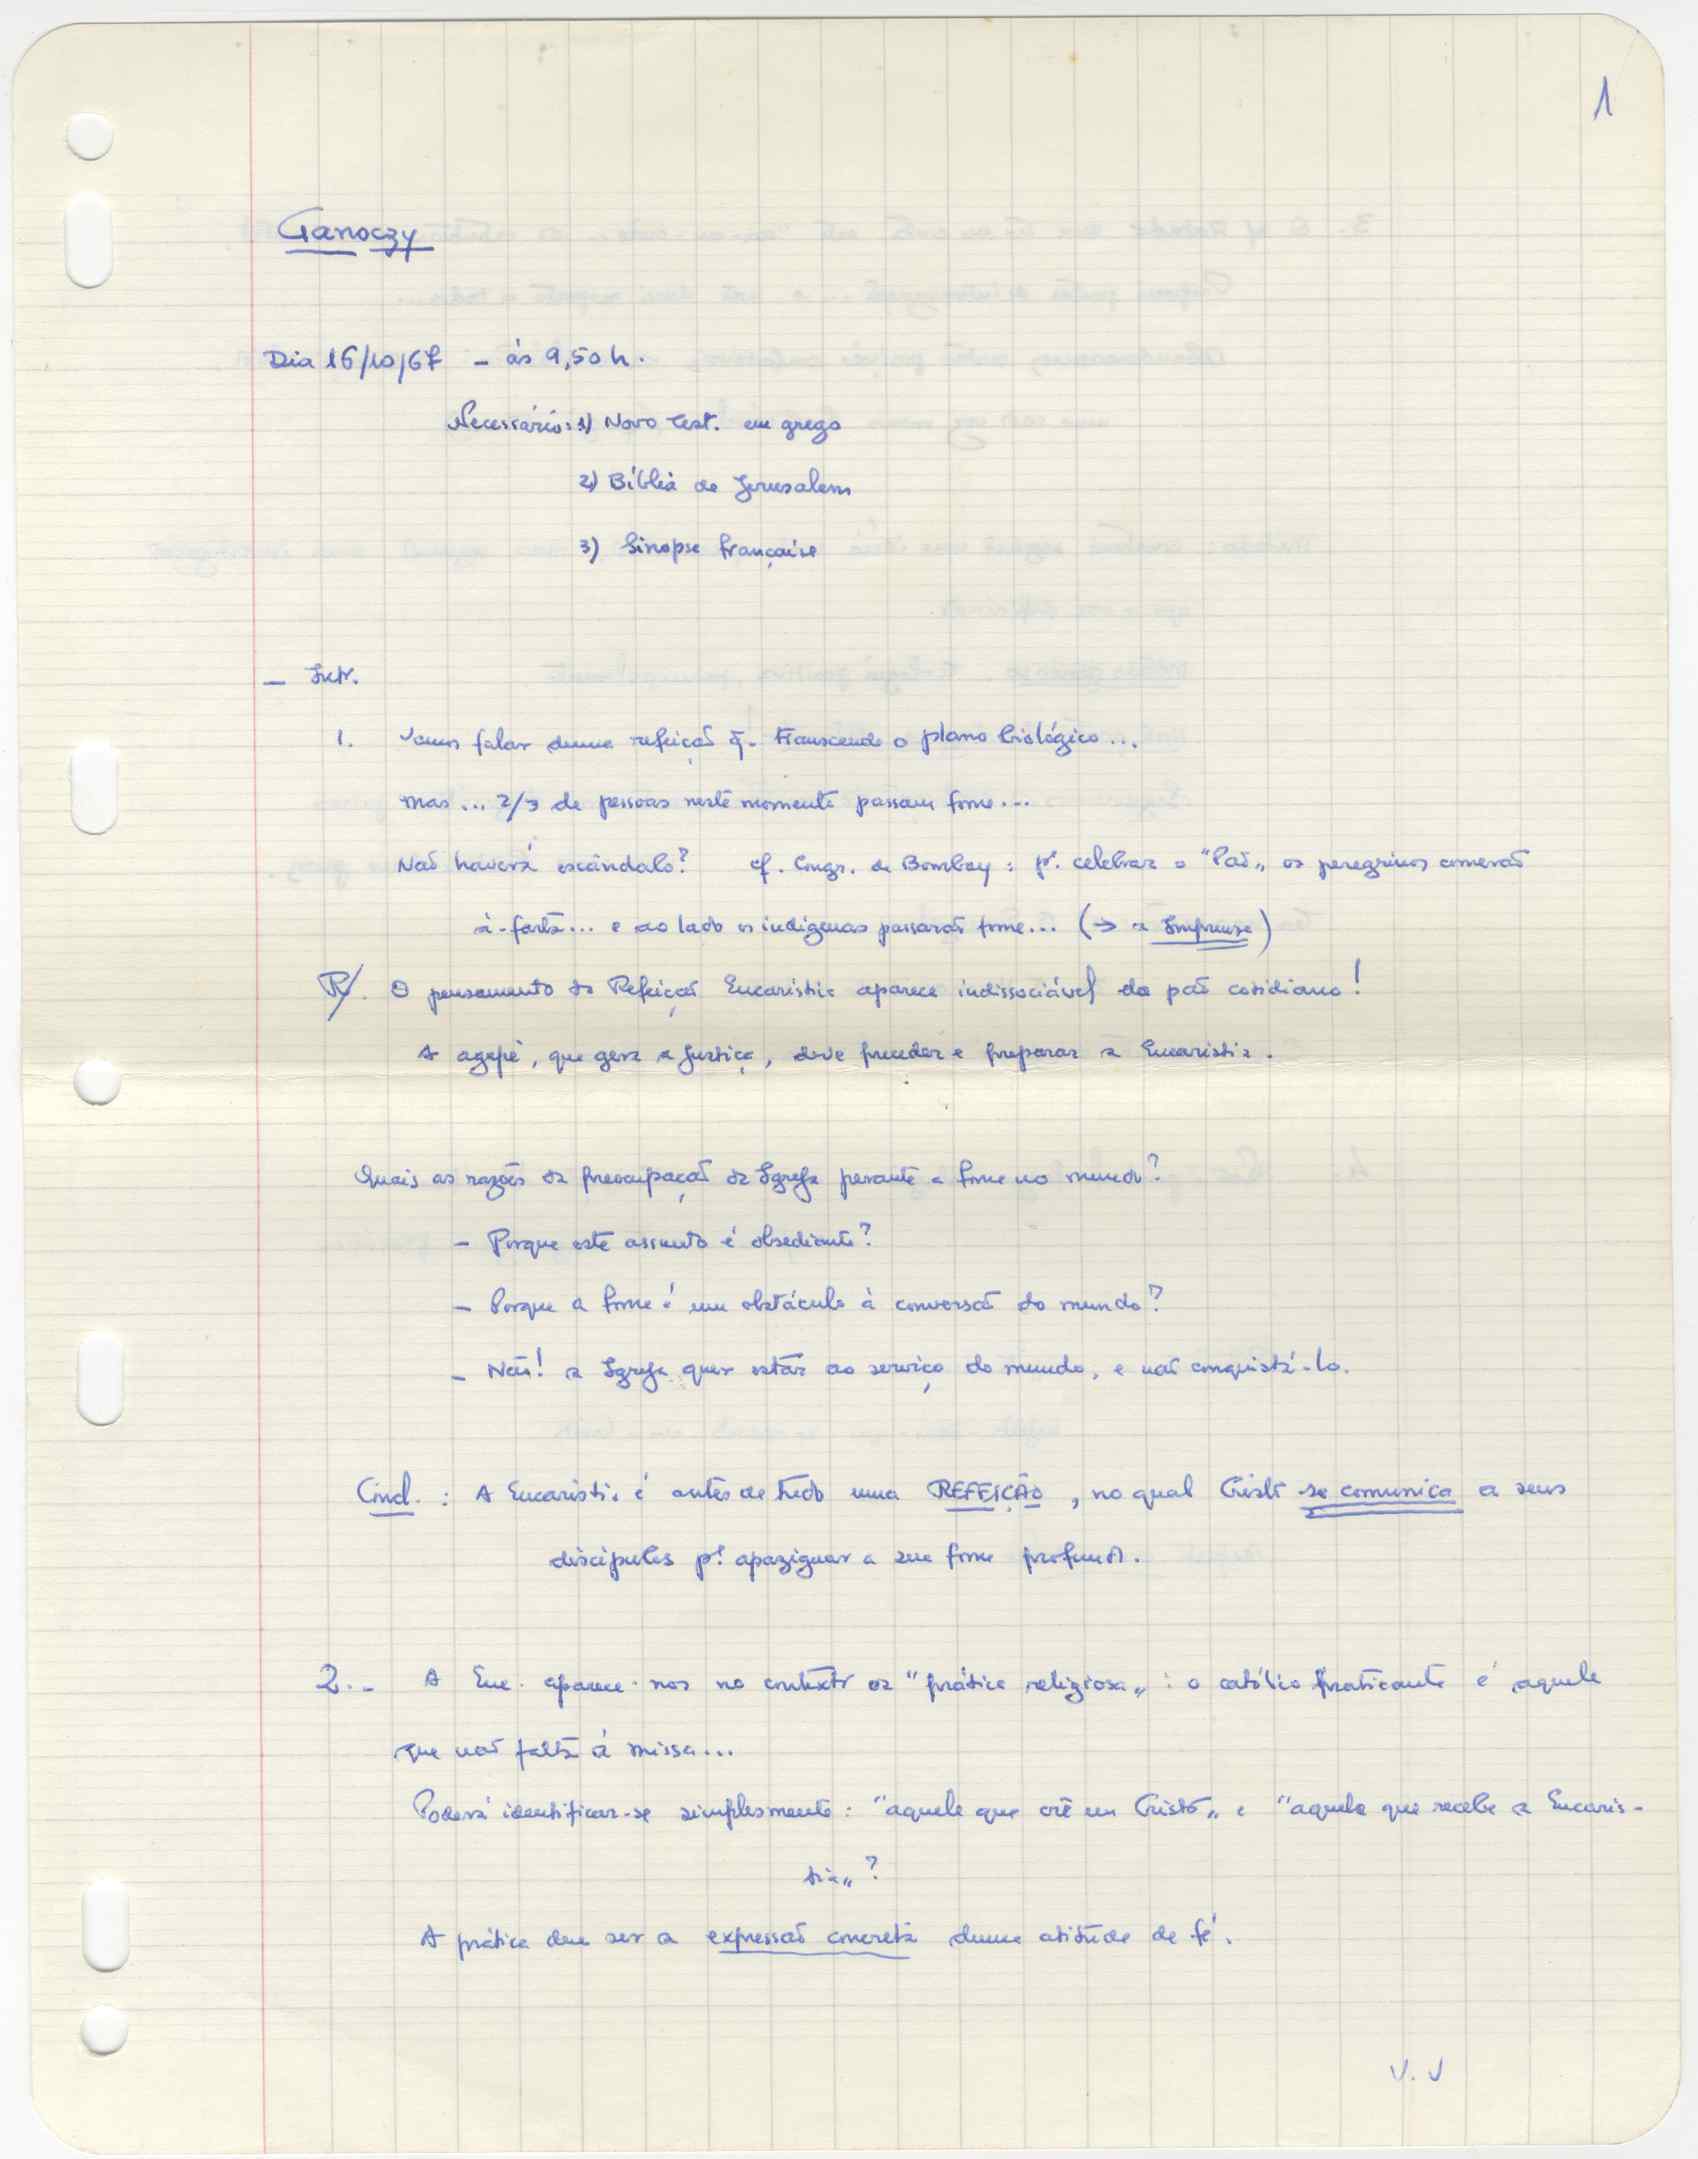 1
Ganoczy
Dia 16/10/67 - às 9,50 h.
Necessário: 1) Novo Test. em grego
2) Bíblia de Jerusalem
3) Sinopse française
- Intr.
1. Vamos falar duma refeição q. transcende o plano biológico...
mas... 2/3 de pessoas neste momento passam fome...
Não haverá escândalo? cf. Congr. de Bombay: pª celebrar o "Pão„ os peregrinos comerão
à-farta... e ao lado os indígenas passarão fome... (→ a Imprensa)
R/. O pensamento da Refeição Eucaristia aparece indissociável do pão cotidiano!
A agapè, que gera a Justiça, deve preceder e preparar a Eucaristia.
Quais as razões da preocupação da Igreja perante a fome no mundo?
- Porque este assunto é obsediante?
- Porque a fome é um obstáculo à conversão do mundo?
- Não! a Igreja quer estar ao serviço do mundo, e não conquistá-lo.
Concl. : A Eucaristia é antes de tudo uma REFEIÇÃO, no qual Cristo se comunica a seus
discípulos pª apaziguar a sua fome profunda.
2.- A Euc. aparece-nos no contexto da "prática religiosa„ : o católico praticante é aquele
que não falta à missa...
Poderá identificar-se simplesmente: "aquele que crê em Cristo„ e "aquele que recebe a Eucaris-
tia„ ?
A prática deve ser a expressão concreta duma atitude de fé.
V. V